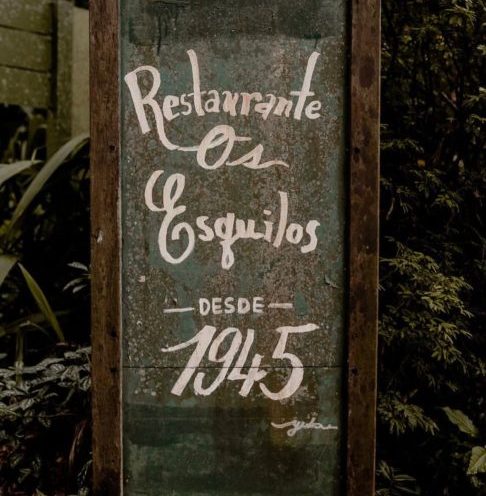 Restaurante
Os
Esquilos
— DESDE —
1945